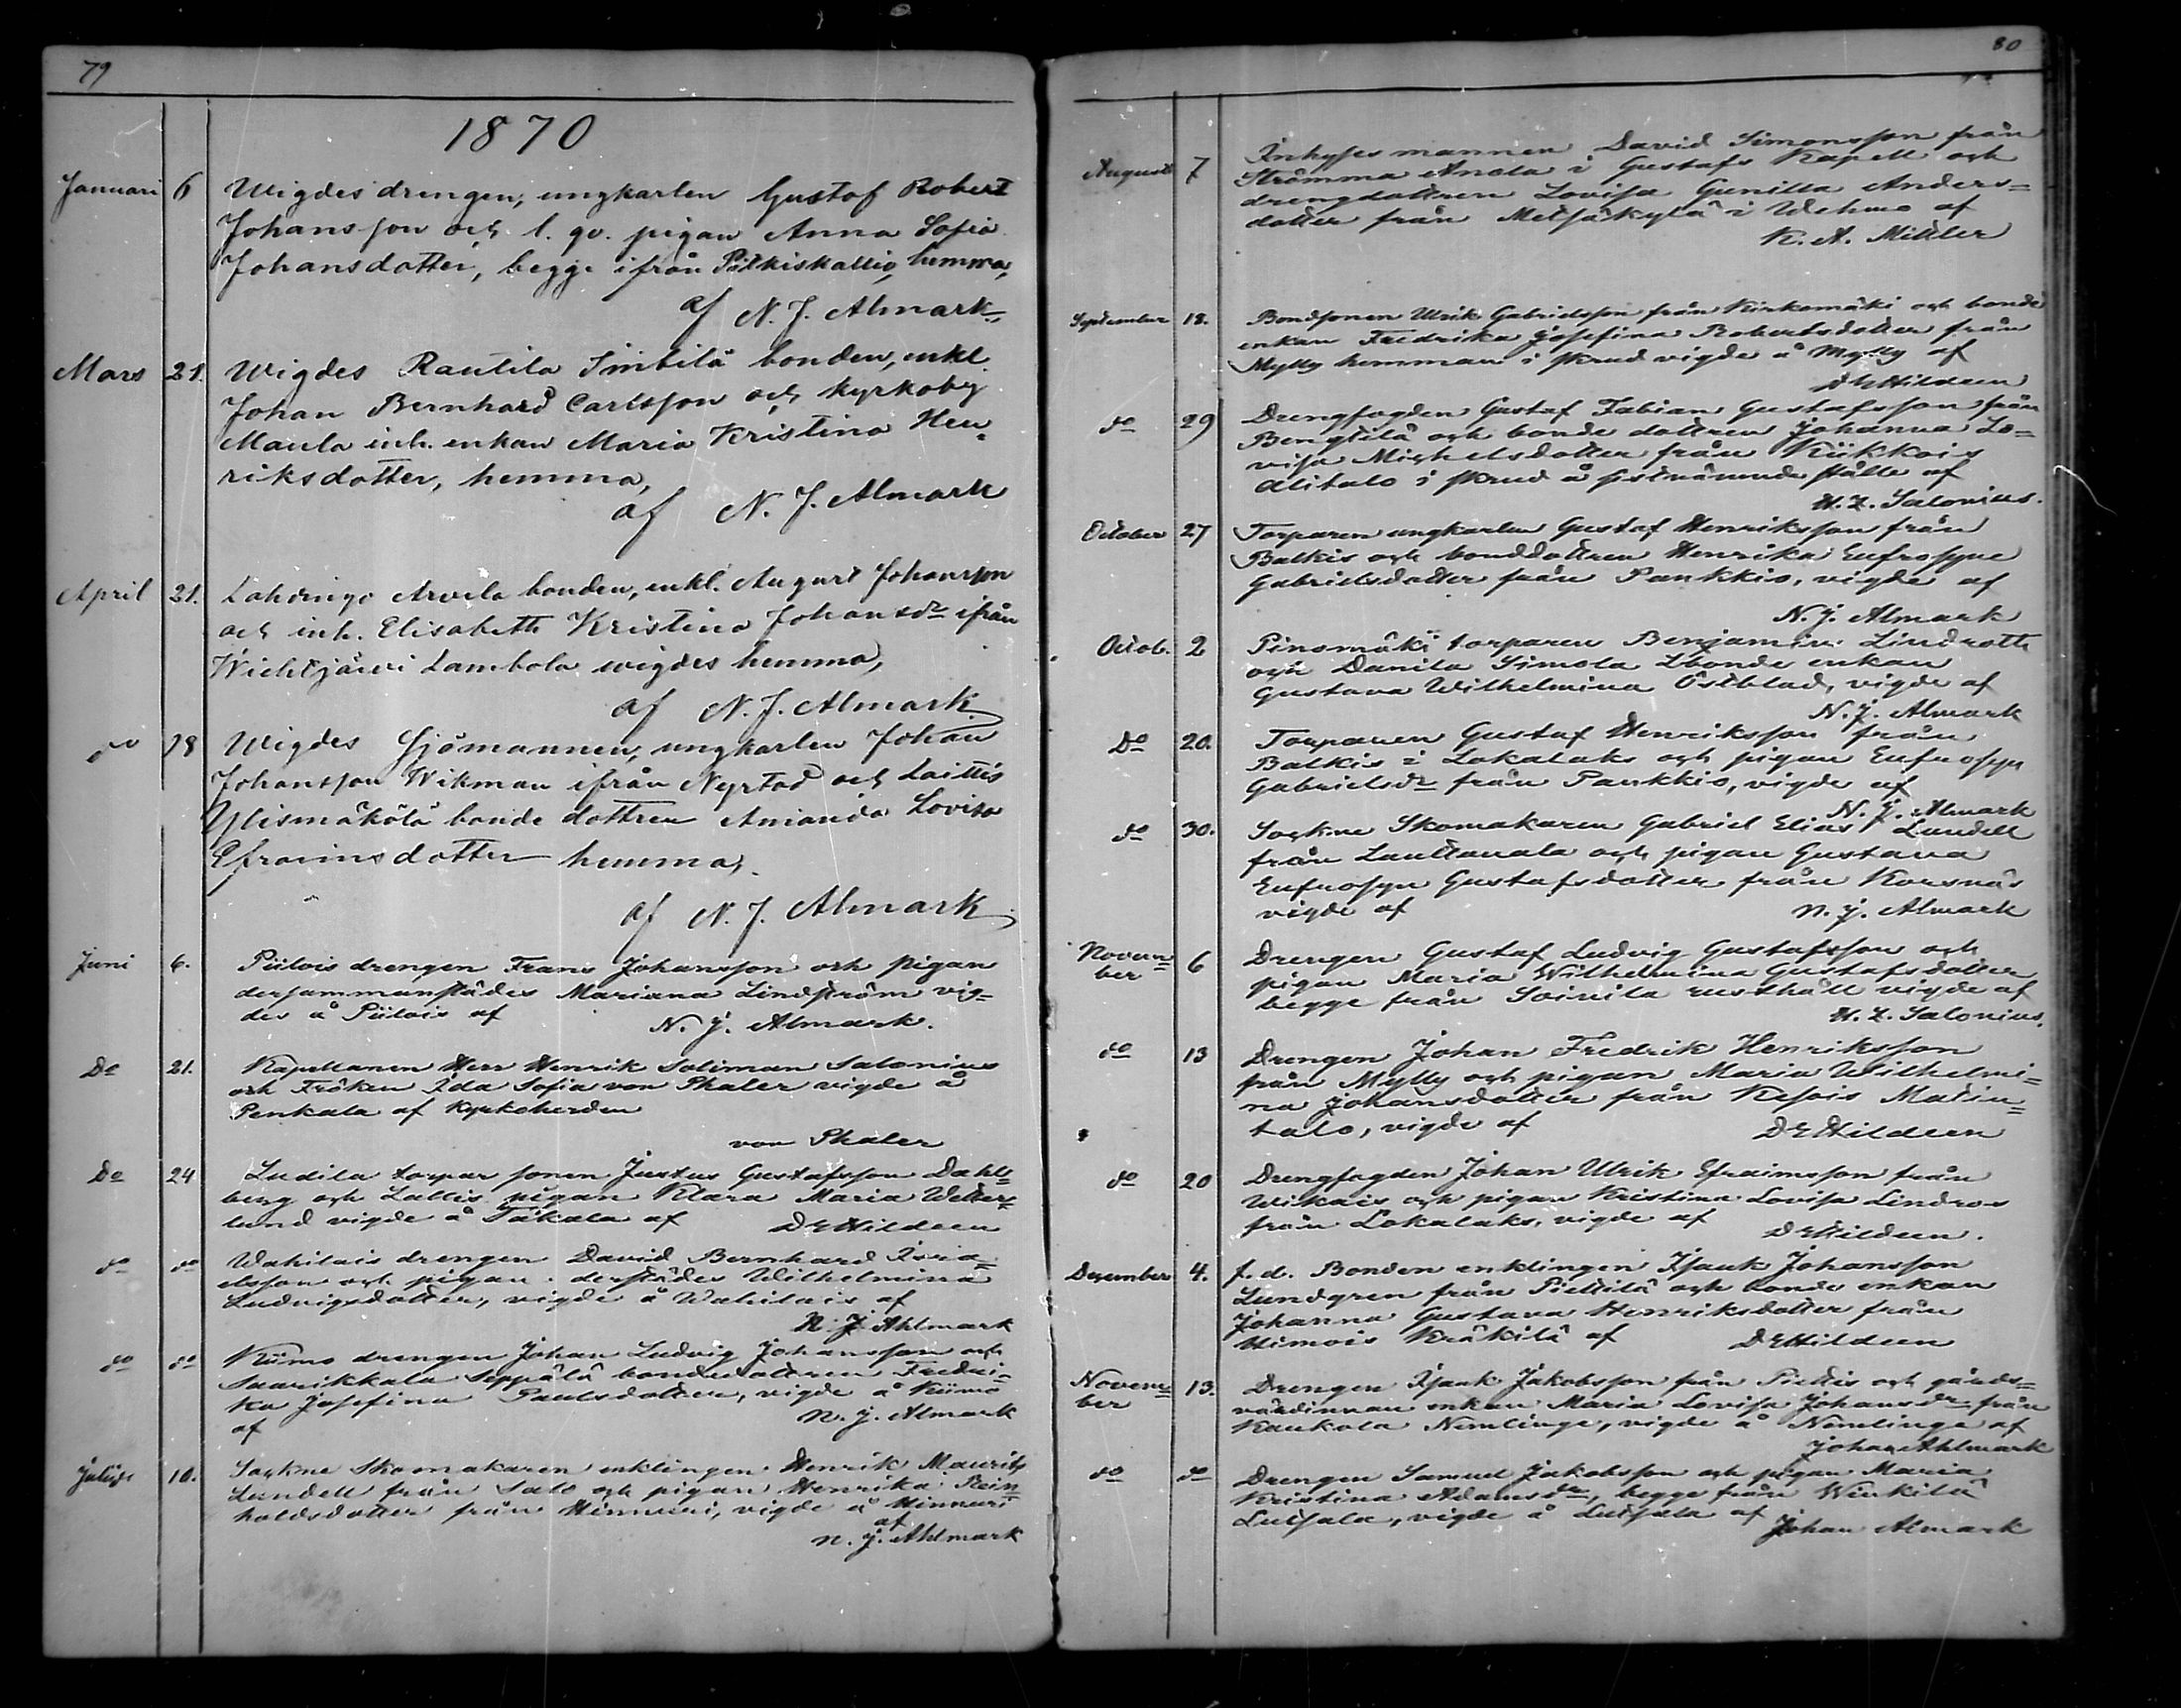 79
1870
Januari 6 Wigdes drengen, ungkarlen Gustaf Robert
Johansson och l. qv. pigan Anna Sofia
Johansdotter, begge ifrån Pitkiskallio, hemma,
af N. J. Almark
Mars 21. Wigdes Rautila Simbilä bonden, enkl.
Johan Bernhard Carlsson och Kyrkoby
Maula inh. enkan Maria Kristina Hen-
riksdotter, hemma,
af N. J. Almark
April 21. Lahdinge Arvela bonden, enkl. August Johansson
och inh. Elisabeth Kristina Johansdr ifrån
Wichtjärvi Lambola wigdes hemma,
af N. J. Almark
do 18 Wigdes Sjömannen, ungkarlen Johan
Johansson Wikman ifrån Nystad och Laittis
Ylismäkölä bonde dottren Amanda Lovisa
Efraimsdotter hemma,
af N. J. Almark
Juni 6. Piilois drengen Frans Johansson och pigan
dersammanstädes Mariana Lindström vig-
des å Piilois af N. J. Almark.
Do 21. Kapellanen Herr Henrik Soliman Salonius
och Fröken Ida Sofia von Phaler vigde å
Penkala af Kyrkoherden
von Phaler
Do 24 Ludila torpar sonen Justus Gustafsson Dahl-
berg och Lallis pigan Klara Maria Wetter-
lund vigde å Täkala af DEHildeen
do do Wahilais drengen David Bernhard Isra-
elsson och pigan derstädes Wilhelmina
Ludvigsdotter, vigde å Wahilais af
N. J. Ahlmark
do do Kiimo drengen Johan Ludvig Johansson och
Saarikkala Seppälä bondedottren Fredri-
ka Josefina Paulsdotter, vigde å Kiimo
af N. J. Almark
Julius 10. Sockne Skomakaren enklingen Henrik Maurits
Lundell från Salo och pigan Henrika Rein-
holdsdotter från Hinnuri, vigde å Hinnuri
af
N. J. Ahlmark
80
Augusti 7 Inhyses mannen David Simonsson från
Strömma Anola i Gustafs Kapell och
drengdottren Lovisa Gunilla Anders-
dotter från Metsäkylä i Wehmo af
K. A. Mittler
September 18. Bondsonen Ulrik Gabrielsson från Kirkomäki och bonde
enkan Fredrika Josefina Robertsdotter från
Mylly hemman i skrud vigde å Mylly af
DEHildeen
do 29 Drengfogden Gustaf Fabian Gustafsson från
Bengtilä och bonde dottren Johanna Lo-
visa Michelsdotter från Kiikkois
Alitalo i skrud å sistnämnde ställe af
H. Z. Salonius.
October 27 Torparen ungkarlen Gustaf Henriksson från
Balkis och bonddottren Henrika Eufrosyne
Gabrielsdotter från Pankkio, vigde af
N. J. Almark
Octob. 2 Pinomäki torparen Benjamin Lindroth
och Danila Simola Lbonde enkan
Gustava Wilhelmina Östblad, vigde af
N. J. Almark
Do 20. Torparen Gustaf Henriksson från
Balkis i Lokalaks och pigan Eufrosyn
Gabrielsdr från Pankkio, vigde af
N. J. Almark
do 30. Sockne Skomakaren Gabriel Elias Lundell
från Lauttanala och pigan Gustava
Eufrosyn Gustafsdotter från Korsnäs
vigde af N. J. Almark
Novem-
ber 6 Drengen Gustaf Ludvig Gustafsson och
pigan Maria Wilhelmina Gustafsdotter
begge från Soinila rusthåll vigde af
H. Z. Salonius.
do 13 Drengen Johan Fredrik Henriksson
från Mylly och pigan Maria Wilhelmi-
na Johansdotter från Kesois Matin-
talo, vigde af DEHildeen
do 20 Drengfogden Johan Ulrik Efraimsson från
Wikais och pigan Kristina Lovisa Lindros
från Lokalaks, vigde af DEHildeen.
December 4. f. d. Bonden enklingen Isaak Johansson
Lundgren från Pietilä och bonde enkan
Johanna Gustava Henriksdotter från
Himois Kräkilä af DEHildeen
Novem-
ber 13. Drengen Isaak Jakobsson från Piettis och gårds-
värdinnan enkan Maria Lovisa Johansdr från
Kaukola Nemlinge, vigde å Nemlinge af
Johan Ahlmark
do do Drengen Samuel Jakobsson och pigan Maria
Kristina Adamsdr, begge från Winkilä
Luisala, vigde å Luisala af
Johan Almark